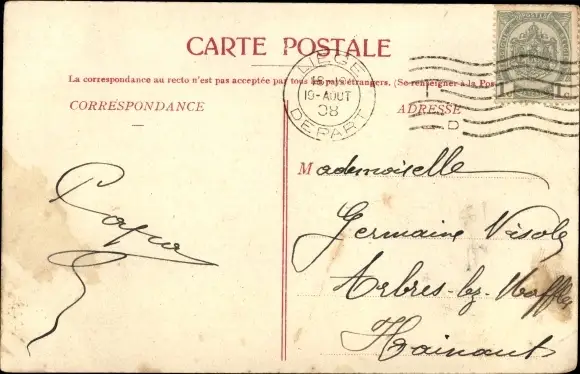 CARTE POSTALE
La correspondance au recto n'est pas acceptée par tous les pays étrangers. (Se renseigner à la Pos
CORRESPONDANCE
ADRESSE
LIEGE
19-AOUT
08
DEPART
Papa
Mademoiselle
Germaine
Arbres-lez-Maffles
Hainaut